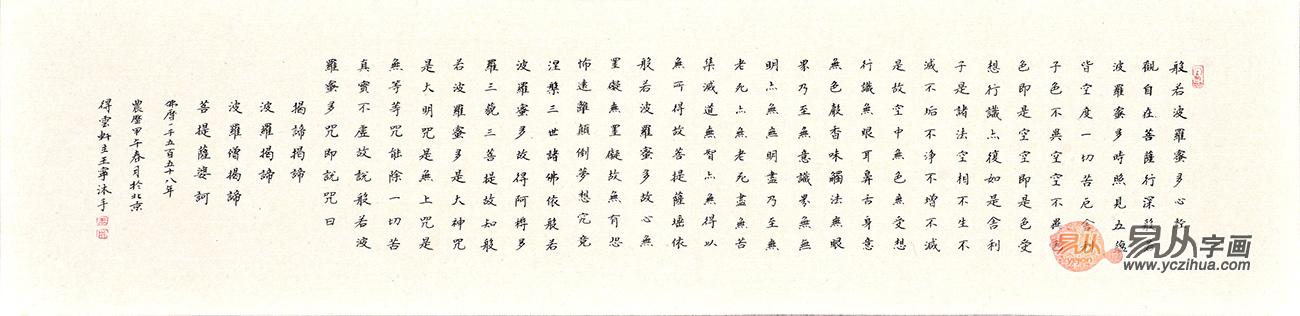 般若波羅蜜多心經
觀自在菩薩行深般若
波羅蜜多時照見五蘊
皆空度一切苦厄舍利
子色不異空空不異色
色即是空空即是色受
想行識亦復如是舍利
子是諸法空相不生不
滅不垢不淨不增不減
是故空中無色無受想
行識無眼耳鼻舌身意
無色聲香味觸法無眼
界乃至無意識界無無
明亦無無明盡乃至無
老死亦無老死盡無苦
集滅道無智亦無得以
無所得故菩提薩埵依
般若波羅蜜多故心無
罣礙無罣礙故無有恐
怖遠離顛倒夢想究竟
涅槃三世諸佛依般若
波羅蜜多故得阿耨多
羅三藐三菩提故知般
若波羅蜜多是大神咒
是大明咒是無上咒是
無等等咒能除一切苦
真實不虛故說般若波
羅蜜多咒即說咒曰
揭諦揭諦
波羅揭諦
波羅僧揭諦
菩提薩婆訶
佛曆二千五百五十八年
農曆甲午春月於北京
得雲軒主王寧沐手
易从字画
www.yczihua.com